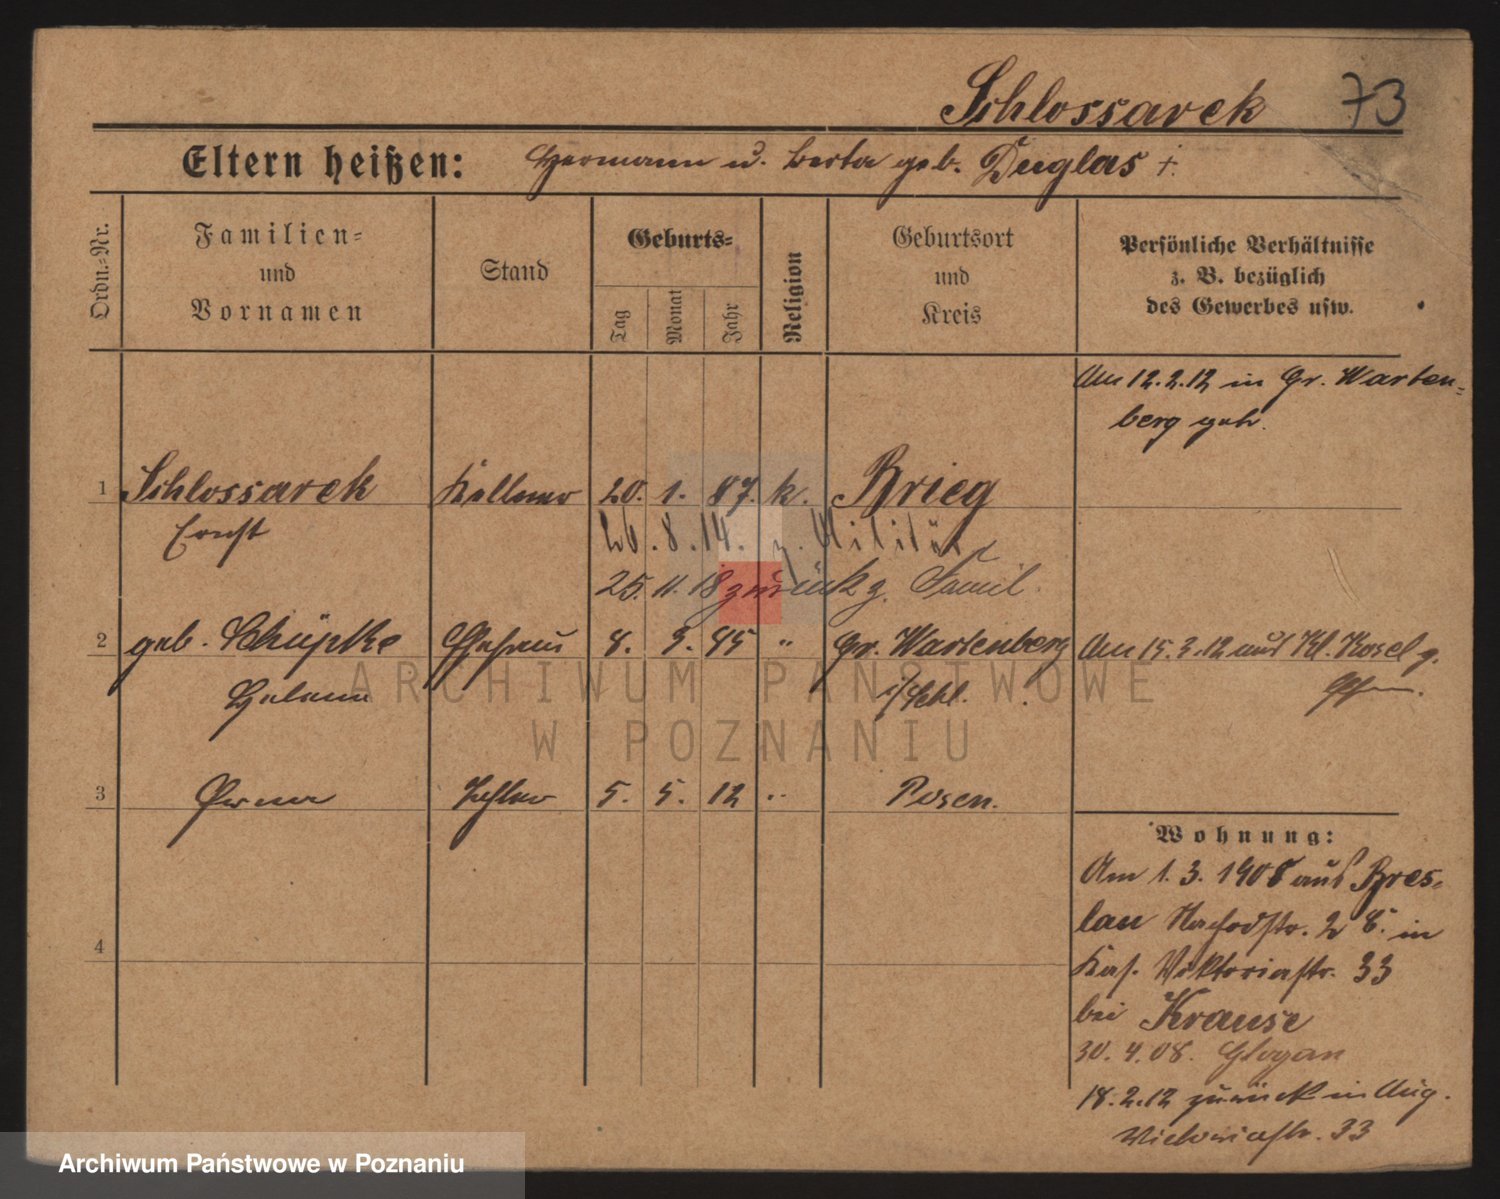 Schlossarek 73
Eltern heißen: Hermann u. Berta geb. Duglas †.
Ordn.-Nr.
Familien-
und
Vornamen
Stand
Geburts-
Tag
Monat
Jahr
Religion
Geburtsort
und
Kreis
Persönliche Verhältnisse
z. B. bezüglich
des Gewerbes usw.
Am 12.2.12 in Gr. Warten-
berg geh.
1 Schlossarek Kellner 20. 1. 87. k. Brieg
Ernst
26. 8. 14. z. Militär
25. 11. 18 zurück z. Famil.
2 geb. Schüpke Ehefrau 8. 3. 85 " Gr. Wartenberg
Helene i/Schl.
Am 15.3.12 aus Kl. Kosel z.
3 Erna Tochter 5. 5. 12 " Posen.
4
Wohnung:
Am 1. 3. 1908 aus Bres-
lau 28. in
Viktoriastr. 33
bei Krause
30. 4. 08. Glogau
18.2.12 zurück in Aug.
Victoriastr. 33
ARCHIWUM PAŃSTWOWE
W POZNANIU
Archiwum Państwowe w Poznaniu